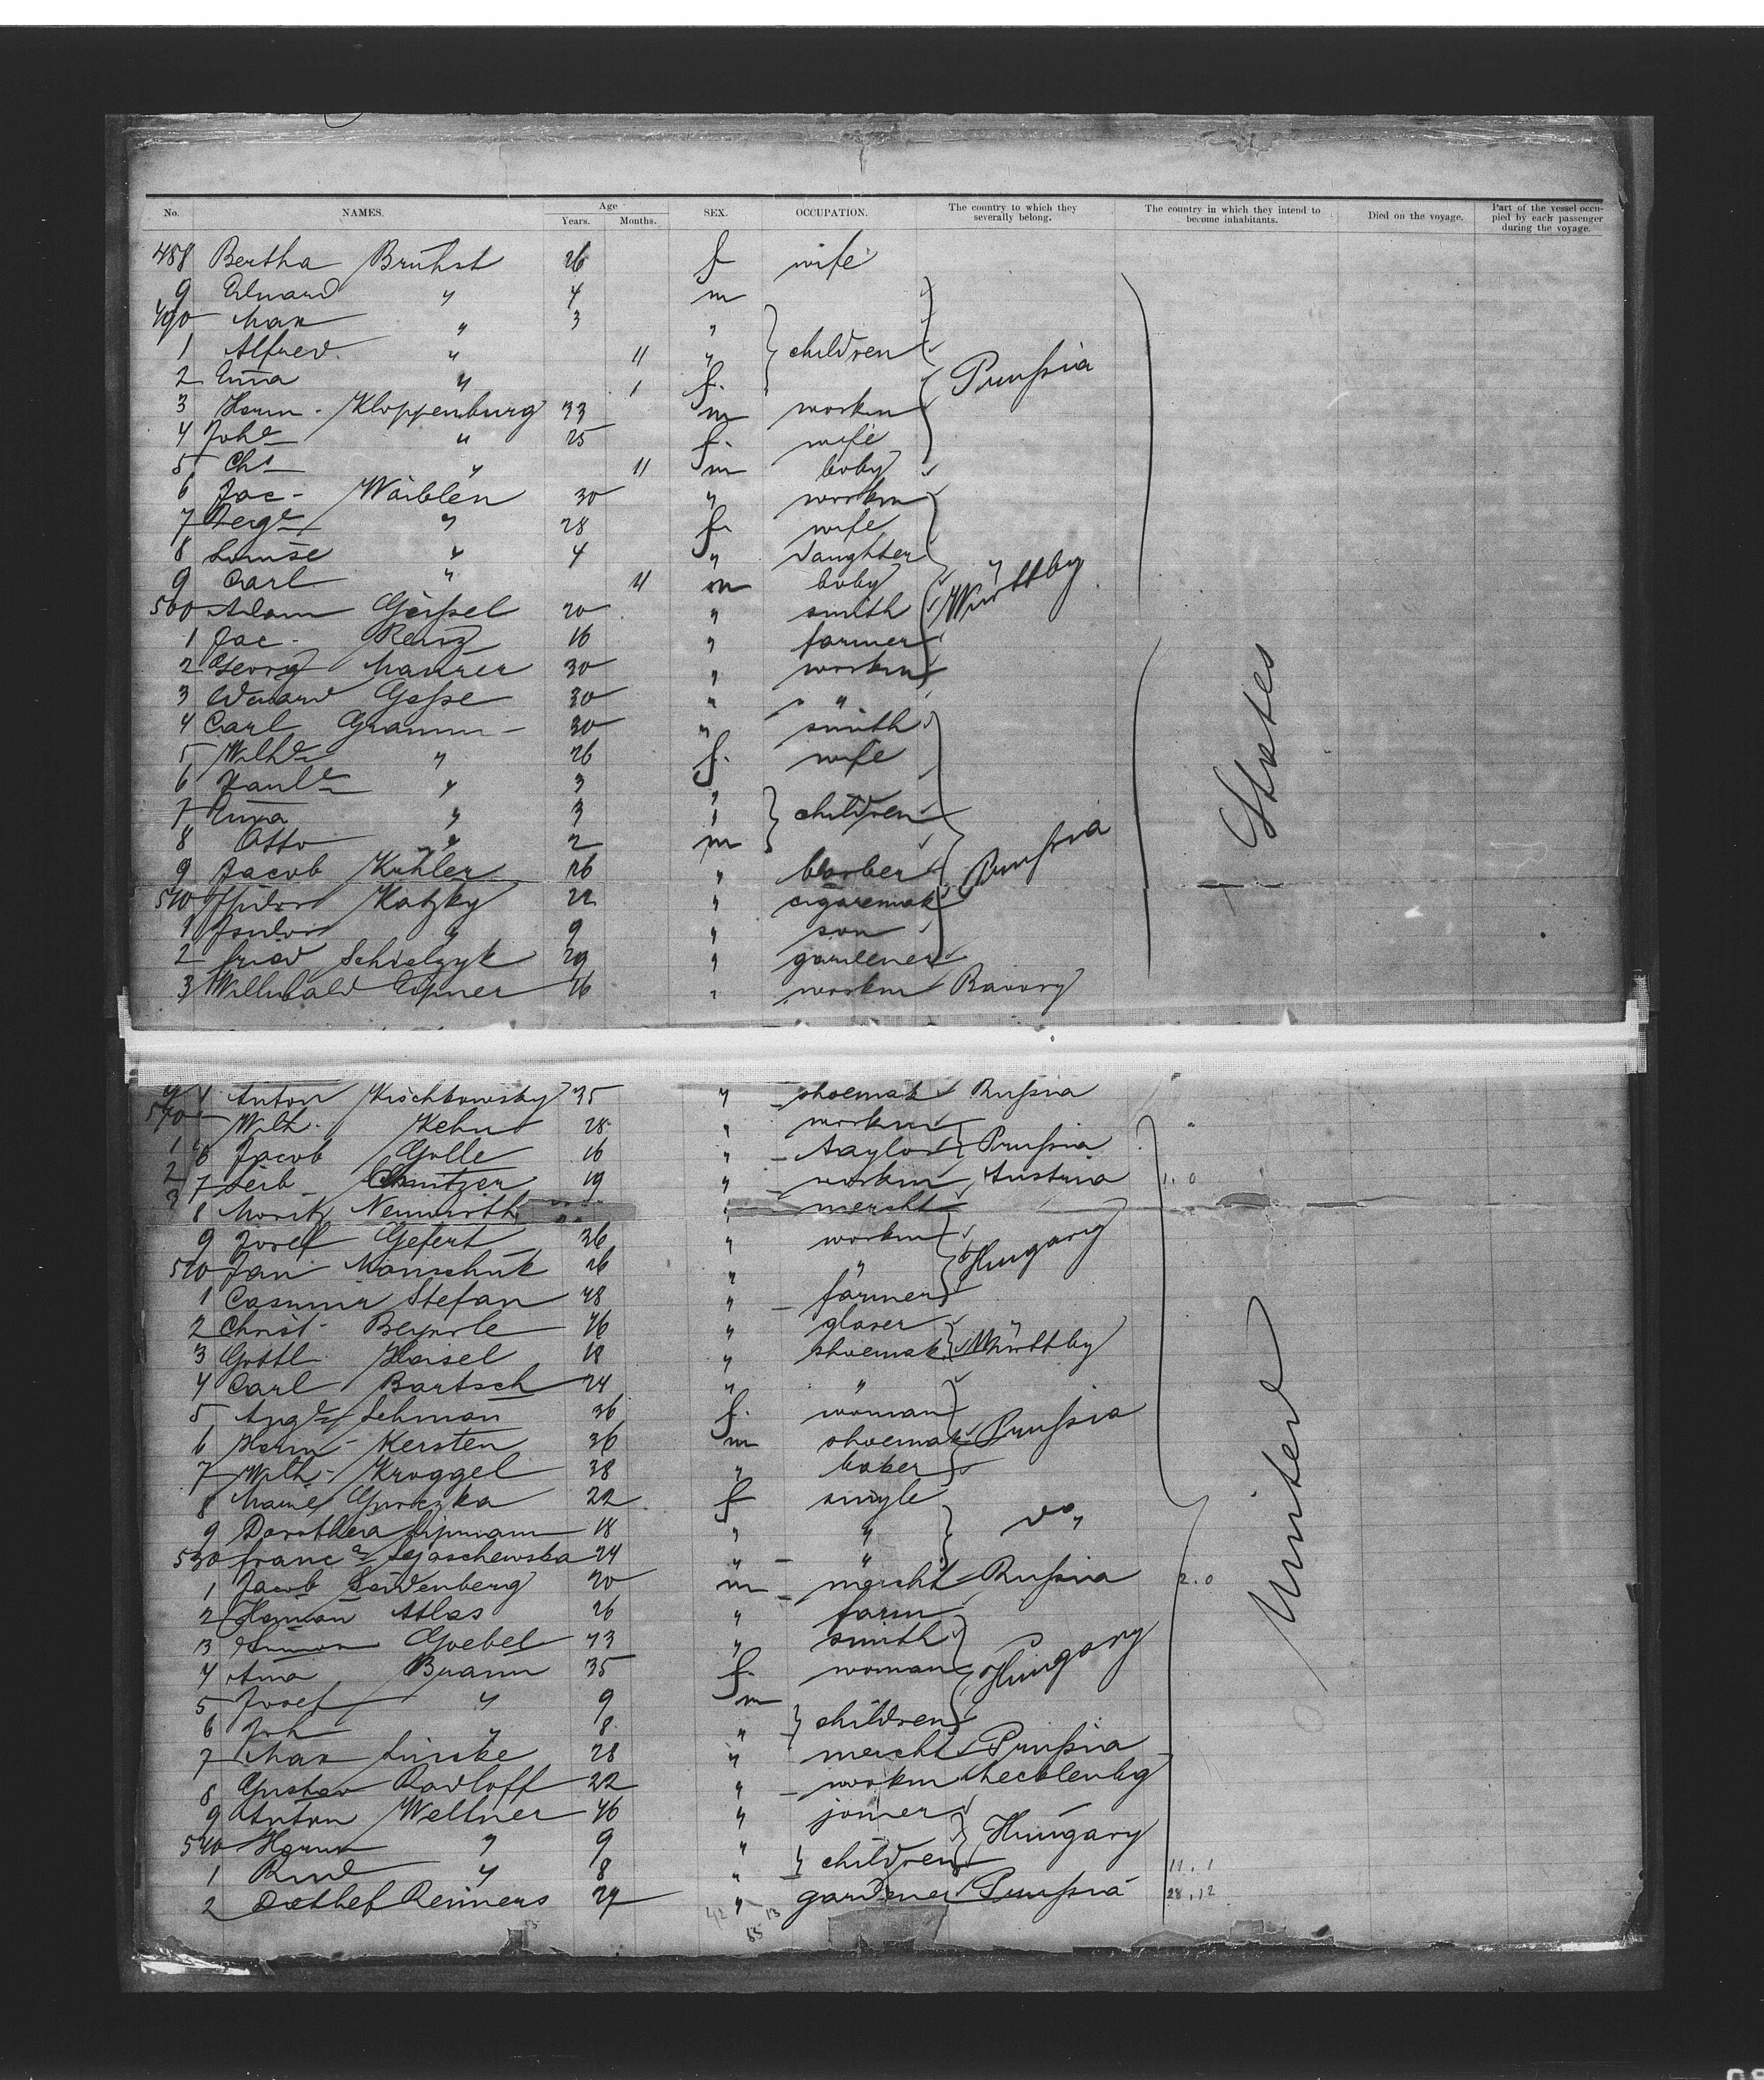 No. NAMES. Age Years. Months. SEX. OCCUPATION. The country to which they severally belong. The country in which they intend to become inhabitants. Died on the voyage. Part of the vessel occupied by each passenger during the voyage.
488 Bertha Brühst 26 f wife
9 Eduard " 4 m
490 Max " 3 "
1 Alfred " 11 " children
2 Anna " 1 f. Prussia
3 Herm - Kloppenburg 33 m workm
4 Johe " 25 f. wife
5 Chs " 11 m baby
6 Jac - Waiblen 30 " workm
7 " 28 f. wife
8 Louise " 4 " daughter
9 Carl " 11 m baby Württbg
500 Adam Geissel 20 " smith
1 Jac - Renz 16 " farmer
2 Georg Maurer 30 " workm
3 Eduard Gesse 30 " "
4 Carl Gramm - 30 " smith
5 Wilhe " 26 f. wife
6 Paule " 3 "
7 Anna " 3 " children
8 Otto " 2 m Prussia
9 Jacob Kuhler 26 " barber
510 Isidor Katzky 22 " cigaremak
1 Isidor " 9 " son
2 fried Schielzyk 29 " gardener
3 Willibald 16 " workm Bavary
States
4 Anton 35 " shoemak Russia
Wilh. Kehn 28 " workm
6 Jacob Golle 16 " taylor Prussia
7 Leib 19 " workm Austria 1.0
8 Moritz Neuwirth " mercht
9 Josef Gefert 36 " workm Hungary
520 Jan Manschuk 26 " "
1 Casimir Stefan 48 " farmer
2 Christ - Beyerle 46 " glaser
3 Gottl. Haisel 18 " shoemak Württbg
4 Carl Bartsch 24 " "
5 Auge Lehman 36 f. woman
6 Herm - Kersten 36 m shoemak Prussia
7 Wilh - Kroggel 38 " baker
8 Marie 22 f single
9 Dorothea Lipmann 18 " " do "
530 franca 24 " "
1 Jacob Seidenberg 20 m mercht Russia 2.0
2 Herman Atlas 26 " farm
3 Simon Goebel 43 " smith
4 Anna Braun 35 f. woman Hungary
5 Josef " 9 m
6 Joh " 8 " children
7 Max 28 " mercht Prussia
8 Gustav Radloff 22 " workm Mecklenbg
9 Anton Wellner 46 " joiner
540 Herm " 9 " Hungary
1 Rud " 8 " children 11.1
2 Dethlef Reimers 29 " gardener Prussia 28.12
United